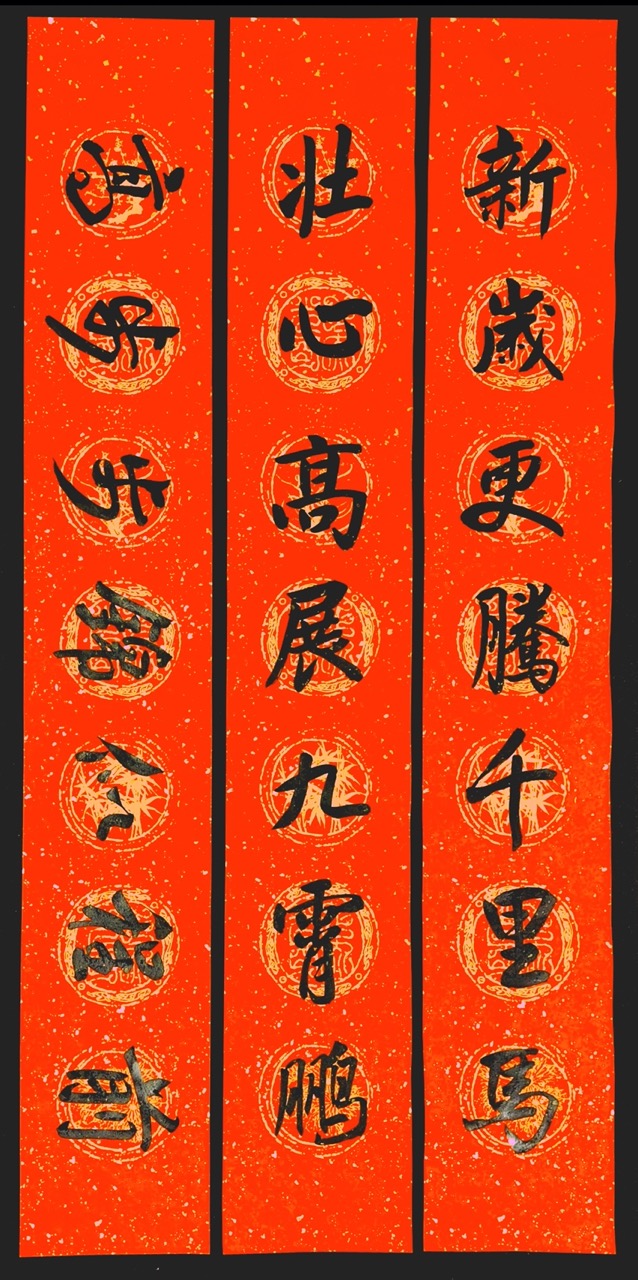 新歲更騰千里馬
壯心高展九霄鵬
前程似錦步步高